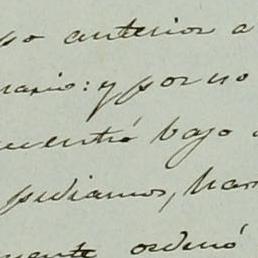 po anterior a
nario: y por no
cuentró bajo
pediamos, har
mente ordenó